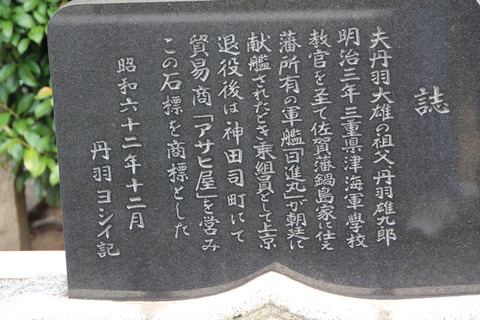 誌
夫丹羽大雄の祖父、丹羽雄九郎
明治三年三重県津海軍学校
教官を経て佐賀藩鍋島家に仕え
藩所有の軍艦「日進丸」が朝廷に
献艦されたとき乗組員として上京
退役後は神田司町にて
貿易商「アサヒ屋」を営み
この石標を商標とした
昭和六十二年十二月
丹羽ヨシイ記